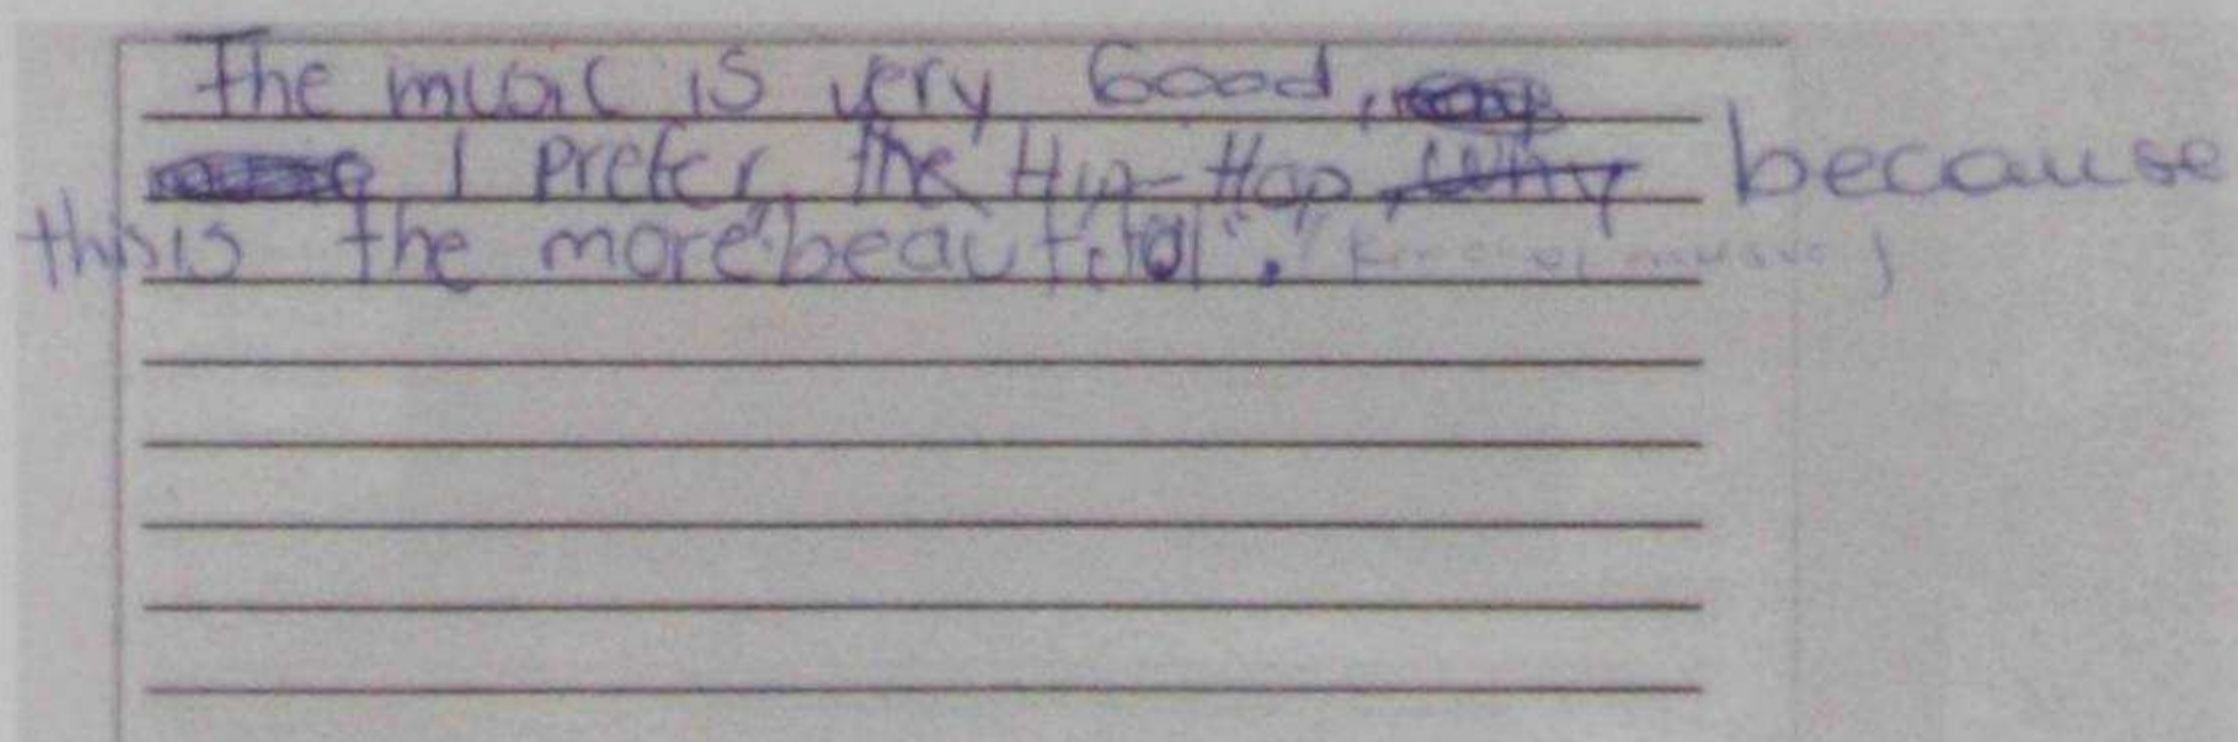 The music is very Good,
I prefer the Hip-Hop Why because
this is the more "beautiful".